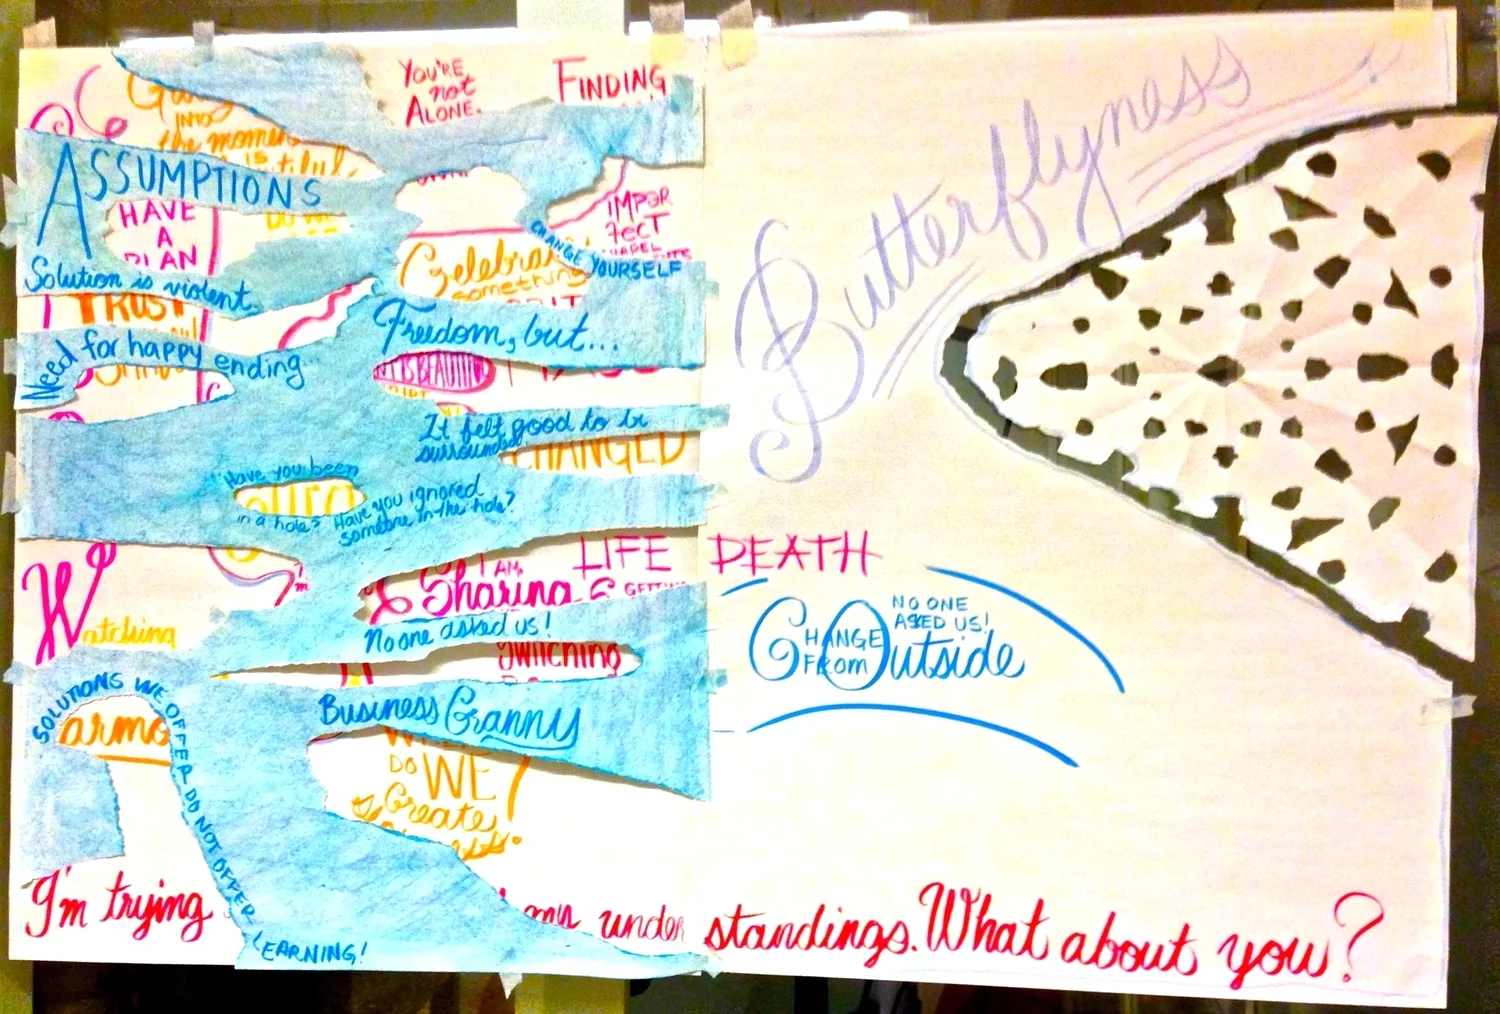 YOU'RE
not
ALONE.
FINDING
INTO
the momen
IS
ASSUMPTIONS
HAVE
A
PLAN
IMPER
fECT
CHANGE YOURSELF
Celebra
something
Solution is violent
TRUST
Freedom, but...
Need for happy ending...
It felt good to be
surrounded
CHANGED
Have you been
in a hole?
Have you ignored
someone in the hole?
LIFE DEATH
I AM
Sharing &
No one asked us!
Watching
SWITCHING
SOLUTIONS WE OFFER DO NOT OFFER LEARNING!
armo
Business Granny
DO WE
Create
?
Butterflyness
CHANGE
FROM
Outside
NO ONE
ASKED US!
I'm trying my understandings. What about you?